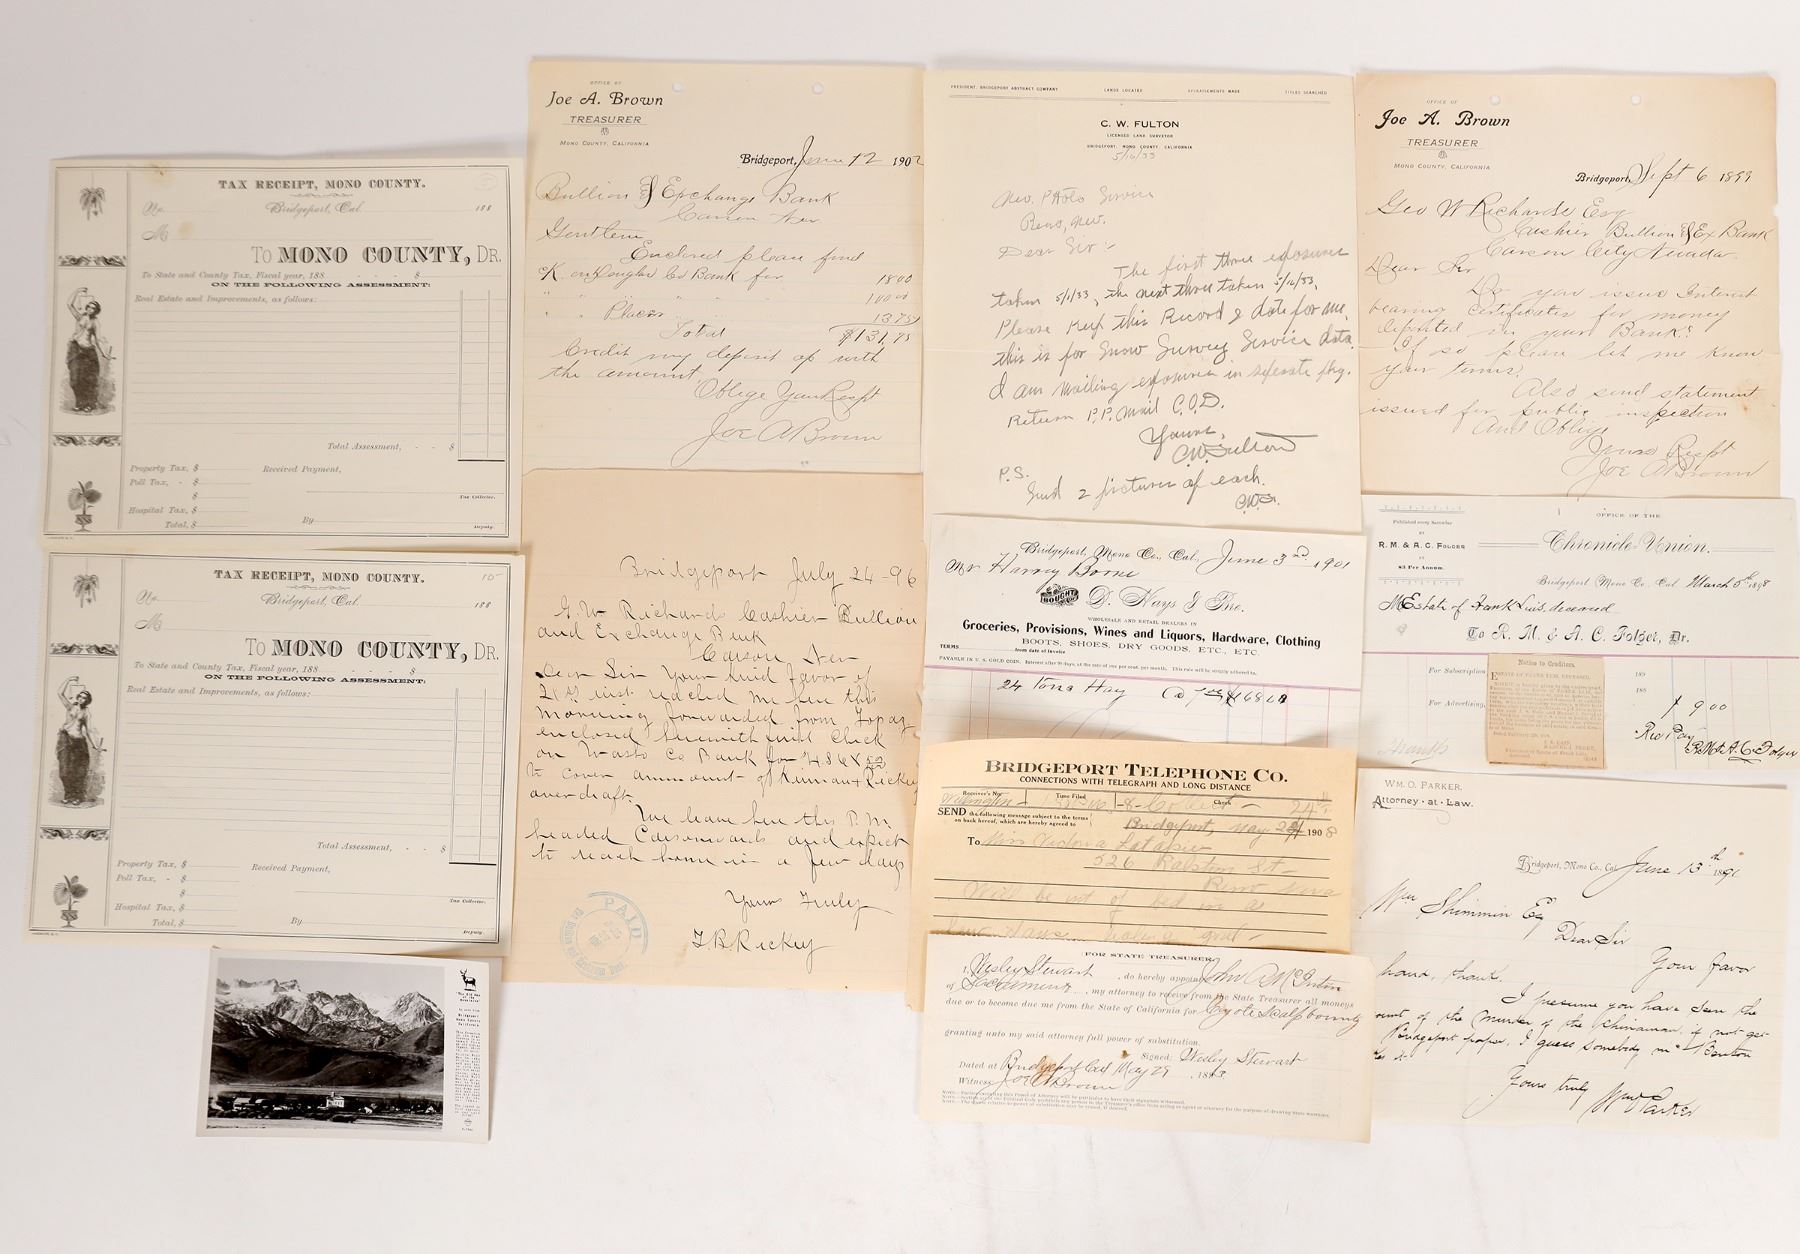 TAX RECEIPT, MONO COUNTY.
No.
Bridgeport, Cal.
188
M
To MONO COUNTY, DR.
To State and County Tax, Fiscal year, 188 $
ON THE FOLLOWING ASSESSMENT:
Real Estate and Improvements, as follows:
Total Assessment, $
Property Tax, $ Received Payment,
Poll Tax, - $
$
Tax Collector.
Hospital Tax, $
By
Total, $
Deputy.
TAX RECEIPT, MONO COUNTY.
10-
No.
Bridgeport, Cal.
188
M
To MONO COUNTY, DR.
To State and County Tax, Fiscal year, 188 $
ON THE FOLLOWING ASSESSMENT:
Real Estate and Improvements, as follows:
Total Assessment, $
Property Tax, $ Received Payment,
Poll Tax, - $
$
Tax Collector.
Hospital Tax, $
By
Total, $
Deputy.
Bridgeport
California
OFFICE OF
Joe A. Brown
TREASURER
MONO COUNTY, CALIFORNIA
Bridgeport, June 12 1902
Bullion & Exchange Bank
Carson Nev
Gentlem
Enclosed please find
ck. on Douglas Co Bank for 18 00
" " " " 100 00
" " Placer " " 13.75
Total $131.75
Credit my deposit ap with
the amount
Oblige Yours Respt
Joe A Brown
Bridgeport July 24-96
G. W Richards Cashier Bullion
and Exchange Bank
Carson Nev
Dear Sir Your kind favor of
21st inst reached me here this
morning forwarded from Topaz
enclosed herewith find check
on Washo Co Bank for $468
to cover ammount of Rickey
overdraft.
We leave here this P.M.
headed Carsonwards and expect
to reach home in a few days
Yours Truly
T.B. Rickey
PAID
PRESIDENT, BRIDGEPORT ABSTRACT COMPANY LANDS LOCATED ABSTRACTS MADE TITLES SEARCHED
C. W. FULTON
LICENSED LAND SURVEYOR
BRIDGEPORT, MONO COUNTY, CALIFORNIA
5/16/33
Nev. Photo Service
Reno, Nev.
Dear Sir:
The first three exposures
taken 5/1/33, the next three taken 5/16/33,
Please keep this Record & date for me,
this is for Snow Survey Service data.
I am mailing exposures in seperate pkg.
Return P.P. Mail C.O.D.
Yours,
C.W. Fulton
P.S.
Send 2 pictures of each.
C.W.F.
Bridgeport, Mono Co., Cal., June 3rd 1901
Mr Harvey Boone
BOUGHT OF
D. Hays & Bro.
WHOLESALE AND RETAIL DEALERS IN
Groceries, Provisions, Wines and Liquors, Hardware, Clothing
BOOTS, SHOES, DRY GOODS, ETC., ETC.
TERMS from date of invoice
PAYABLE IN U. S. GOLD COIN. Interest after 30 days, at the rate of one per cent. per month. This rule will be strictly adhered to.
24 Tons Hay @ 7.00 $168.00
BRIDGEPORT TELEPHONE CO.
CONNECTIONS WITH TELEGRAPH AND LONG DISTANCE
Receiver's No. Time Filed Check
Wellington
SEND the following message subject to the terms
on back hereof, which are hereby agreed to
Bridgeport, May 24 1908
To
526 Ralston St
Reno Neva
Will be out of bed in a
few days
FOR STATE TREASURER.
I, Wesley Stewart, do hereby appoint John A McQuinton
of Sacramento, my attorney to receive from the State Treasurer all moneys
due or to become due me from the State of California for Coyote Scalp bounty
granting unto my said attorney full power of substitution.
Signed: Wesley Stewart
Dated at Bridgeport Cal May 29, 1893.
Witness Joe A Brown
OFFICE OF
Joe A. Brown
TREASURER
MONO COUNTY, CALIFORNIA
Bridgeport, Sept 6 1899
Geo W Richards Esq
Cashier Bullion & Ex Bank
Carson City Nevada.
Dear Sir
Do you issue Interest
bearing Certificates for money
deposited in your Bank?
If so please let me know
your Terms?
Also send statement
issued for public inspection
And Oblige
Yours Respt
Joe A Brown
OFFICE OF THE
Published every Saturday
BY
R. M. & A. C. FOLGER
AT
$3 Per Annum.
Chronicle-Union.
Bridgeport Mono Co., Cal. March 5th 1898
M Estate of Hank Luis, deceased
To R. M. & A. C. Folger, Dr.
For Subscription 189
188
For Advertising, $ 9 00
Notice to Creditors.
Rec'd Pay
R M & A. C. Folger
Thanks
WM. O. PARKER.
Attorney-at-Law.
Bridgeport, Mono Co., Cal. June 13th 1891
Wm Shimmin Esq
Dear Sir
Your favor
hand, thanks.
I presume you have seen the
ount of the murder of the chinaman, if not get
Bridgeport paper. I guess somebody in Benton
Yours truly
Wm O Parker